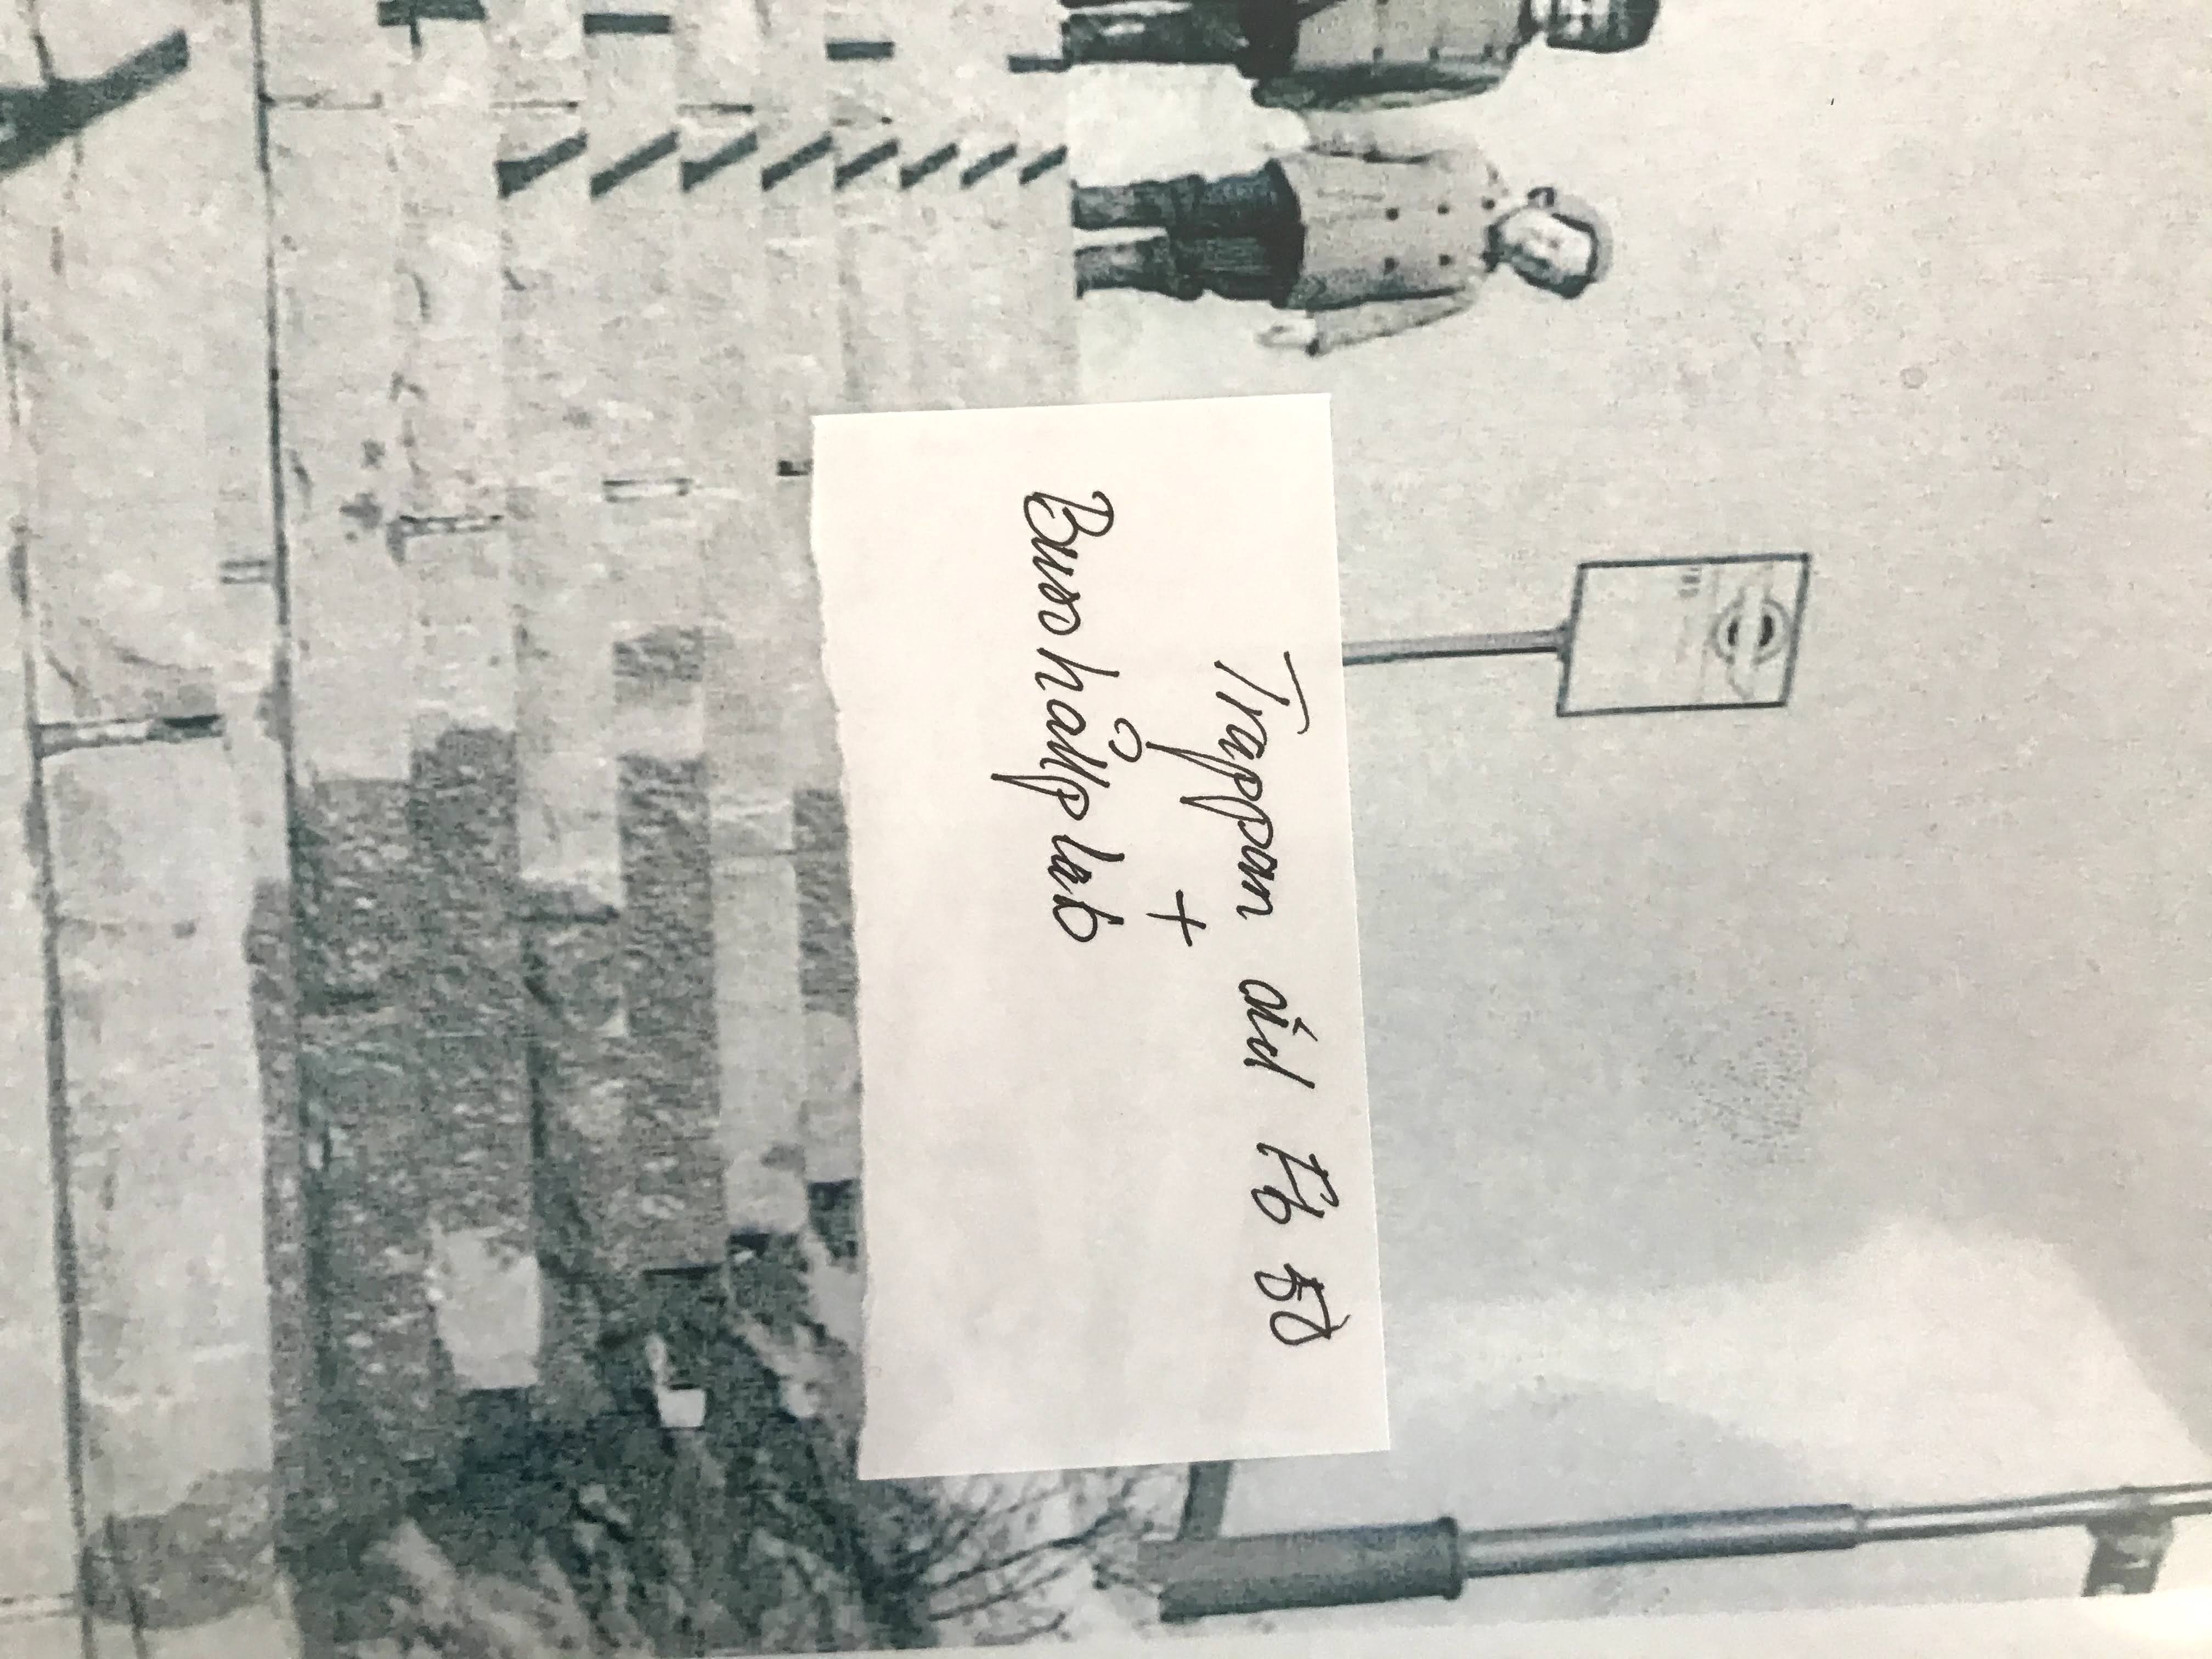 Trappan vid Fb 50
+
Busshållplats